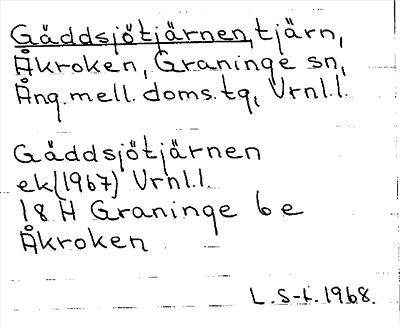 Gäddsjötjärnen, tjärn,
Åkroken, Graninge sn,
Ång.mell.doms.tg, Vrnl.l.
Gäddsjötjärnen
ek(1967) Vrnl.l.
18 H Graninge 6e
Åkroken
L.S-t.1968.